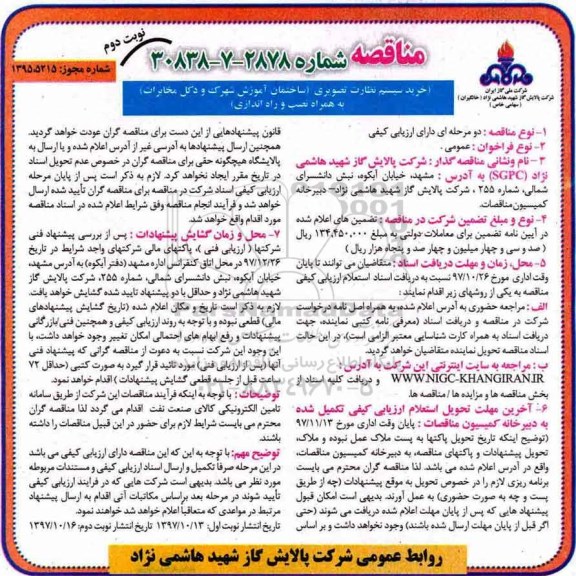 نوبت دوم
مناقصه شماره ۲۸۷۸-۷-۳۰۸۳۸
شماره مجوز: ۱۳۹۵،۵۲۱۵
شرکت ملی گاز ایران
شرکت پالایش گاز شهید هاشمی نژاد (خانگیران)
(سهامی خاص)
(خرید سیستم نظارت تصویری (ساختمان آموزش شهرک و دکل مخابرات)
به همراه نصب و راه اندازی)
۱- نوع مناقصه : دو مرحله ای دارای ارزیابی کیفی
۲- نوع فراخوان : عمومی .
۳ - نام ونشانی مناقصه گذار : شرکت پالایش گاز شهید هاشمی
نژاد (SGPC) به آدرس : مشهد، خیابان آبکوه، نبش دانشسرای
شمالی، شماره ۲۵۵ ، شرکت پالایش گاز شهید هاشمی نژاد- دبیرخانه
کمیسیون مناقصات.
۴- نوع و مبلغ تضمین شرکت در مناقصه : تضمین های اعلام شده
در آیین نامه تضمین برای معاملات دولتی به مبلغ ۱۳۴,۴۵۰,۰۰۰ ریال
( صد و سی و چهار میلیون و چهار صد و پنجاه هزار ریال )
۵- محل، زمان و مهلت دریافت اسناد : متقاضیان می توانند تا پایان
وقت اداری مورخ ۹۷/۱۰/۲۶ نسبت به دریافت اسناد استعلام ارزیابی کیفی
مناقصه به یکی از روشهای زیر اقدام نمایند :
الف : مراجعه حضوری به آدرس اعلام شده، به همراه اصل نامه درخواست
شرکت در مناقصه و دریافت اسناد (معرفی نامه کتبی نماینده، جهت
دریافت اسناد به همراه کارت شناسایی معتبر الزامی است)، در این حالت
اسناد مناقصه تحویل نماینده متقاضیان خواهد گردید.
ب : مراجعه به سایت اینترنتی این شرکت به آدرس :
WWW.NIGC-KHANGIRAN.IR و دریافت کلیه اسناد از
بخش مناقصه ها و مزایده ها / مناقصه ها.
۶- آخرین مهلت تحویل استعلام ارزیابی کیفی تکمیل شده
به دبیرخانه کمیسیون مناقصات : پایان وقت اداری مورخ ۹۷/۱۱/۱۳
(توضیح اینکه تاریخ تحویل پاکتها به پست ملاک عمل نبوده و ملاک،
تحویل پیشنهادات و پاکتهای مناقصه، به دبیرخانه کمیسیون مناقصات،
واقع در آدرس اعلام شده می باشد. لذا مناقصه گران محترم می بایست
برنامه ریزی لازم را در خصوص تحویل به موقع پیشنهادات (چه از طریق
پست و چه به صورت حضوری) به عمل آورند. بدیهی است امکان قبول
پیشنهاد هایی که پس از پایان مهلت اعلام شده دریافت می شوند (حتی
اگر قبل از پایان مهلت ارسال شده باشند) وجود نخواهد داشت و بر اساس
قانون پیشنهادهایی از این دست برای مناقصه گران عودت خواهد گردید.
همچنین ارسال پیشنهادها به آدرسی غیر از آدرس اعلام شده و یا ارسال به
پالایشگاه هیچگونه حقی برای مناقصه گران در خصوص عدم تحویل اسناد
در تاریخ مقرر ایجاد نخواهد کرد. لازم به ذکر است پس از پایان مرحله
ارزیابی کیفی اسناد شرکت در مناقصه برای مناقصه گران تأیید شده ارسال
خواهد شد و فرآیند انجام مناقصه وفق شرایط اعلام شده در اسناد مناقصه
مورد اقدام واقع خواهد شد.
۷- محل و زمان گشایش پیشنهادات : پس از بررسی پیشنهاد فنی
شرکتها ( ارزیابی فنی )، پاکتهای مالی شرکتهای واجد شرایط در تاریخ
۹۷/۱۲/۲۶ در محل اتاق کنفرانس اداره مشهد (دفتر آبکوه) به آدرس مشهد،
خیابان آبکوه، نبش دانشسرای شمالی، شماره ۲۵۵، شرکت پالایش گاز
شهید هاشمی نژاد و حداقل با دو پیشنهاد تایید شده گشایش خواهد یافت.
لازم به ذکر است تاریخ و مکان اعلام شده (تاریخ گشایش پیشنهادهای
مالی) قطعی نبوده و با توجه به روند ارزیابی کیفی و همچنین فنی/بازرگانی
پیشنهادات و رفع ابهام های احتمالی امکان تغییر وجود خواهد داشت، با
این وجود این شرکت نسبت به دعوت از مناقصه گرانی که پیشنهاد فنی
آنها پس از ارزیابی فنی مورد تائید قرار گیرد به صورت کتبی (حداقل ۷۲
ساعت قبل از جلسه قطعی گشایش پیشنهادات ) اقدام خواهد نمود.
توضیحات : با توجه به اینکه فرآیند مناقصات این شرکت از طریق سامانه
تامین الکترونیکی کالای صنعت نفت اقدام می گردد لذا مناقصه گران
محترم می بایست شرایط لازم برای حضور در این قبیل مناقصات را داشته
باشند.
توضیح مهم: با توجه به این که این مناقصه دارای ارزیابی کیفی می باشد
در این مرحله صرفاً تکمیل و ارسال اسناد ارزیابی کیفی و مستندات مربوطه
مورد نظر می باشد. بدیهی است شرکت هایی که در فرایند ارزیابی کیفی
تأیید شوند در مرحله بعد براساس مکاتبات آتی اقدام به ارسال پیشنهاد
مرتبط در مواعدی که متعاقباً اعلام خواهد شد خواهند نمود.
تاریخ انتشار نوبت اول: ۱۳۹۷/۱۰/۱۳ تاریخ انتشار نوبت دوم: ۱۳۹۷/۱۰/۱۶
روابط عمومی شرکت پالایش گاز شهید هاشمی نژاد